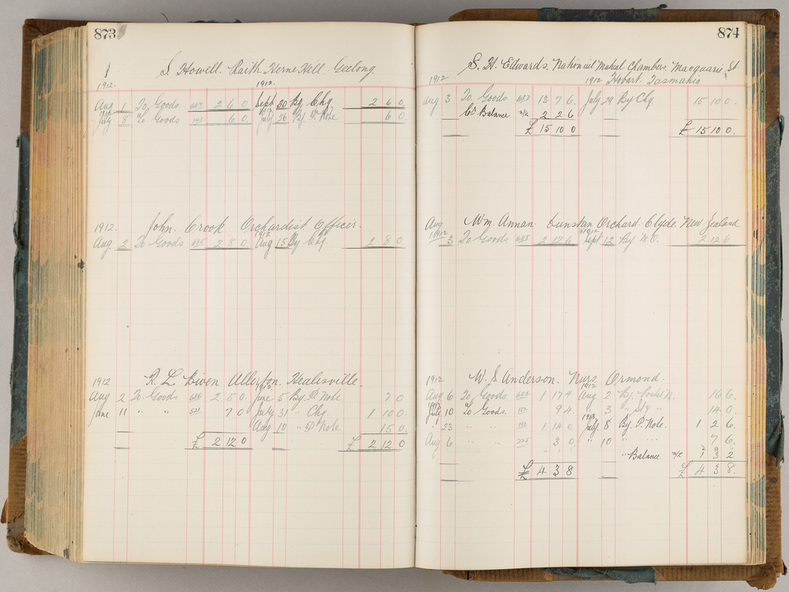 873
S. Howell. Raith. Herne Hill. Geelong
1912. 1912.
Aug 1 To Goods 2 6 0 Sept 20 By Chq 2 6 0
July 5 To Goods 6 0 July 26 By P. Note 6 0
1912. John Crook Orchardist Officer.
Aug 2 To Goods 635 2 8 0 1912 Aug 15 By Chq 2 8 0
1912 R. L. Allerton. Healesville.
Aug 2 To Goods 636 2 5 0 June 5 By P Note 7 0
June 11 " " 7 0 July 31 " Chq 1 10 0
Aug 10 " P Note 15 0
£ 2 12 0 £ 2 12 0
874
S. H. Edwards. National Mutual Chambers. Macquarie St
1912 1912 Hobart. Tasmania
Aug 3 To Goods 12 7 6 July 29 By Chq 15 10 0
By Balance 2 2 6
£ 15 10 0 £ 15 10 0
Aug Wm. Annan. Orchard Clyde New Zealand
1912 3 To Goods 2 12 6 1912 Sept 12 By M.O. 2 12 6
1912 W. S. Anderson. Nurs. Ormond.
Aug 6 To Goods 1 17 4 1912 Aug 2 By N. 16 6
July 10 To Goods 9 4 " 3 " " 14 0
" 23 " " 1 14 0 1913 July 8 By P. Note 1 2 6
Aug 6 " " 3 0 " 10 " " 7 6
" Balance 1 3 2
£ 4 3 8 £ 4 3 8